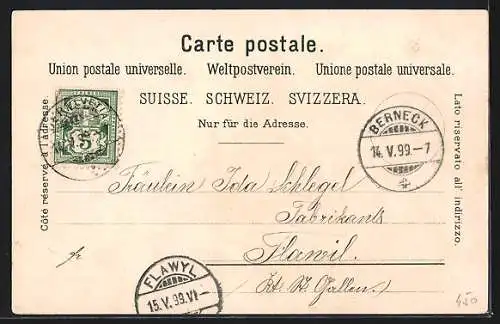 Carte postale.
Union postale universelle. Weltpostverein. Unione postale universale.
SUISSE. SCHWEIZ. SVIZZERA.
Nur für die Adresse.
Côté réservé à l'adresse.
Lato riservato all' indirizzo.
HELVETIA
5
BERNECK
14.V.99.-7
Fräulein Ida Schlegel
Fabrikants
Flawil.
Kt. St. Gallen.
FLAWYL
15.V.99.VI-